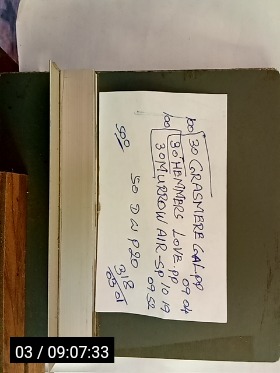 100 30 GRASMERE GAL-PP 09 04
100 30 HEMMERS LOVE PP 09 52
30 MURROW AIR-SP 10 19
500 50 D W P20 318
03 / 09:07:33